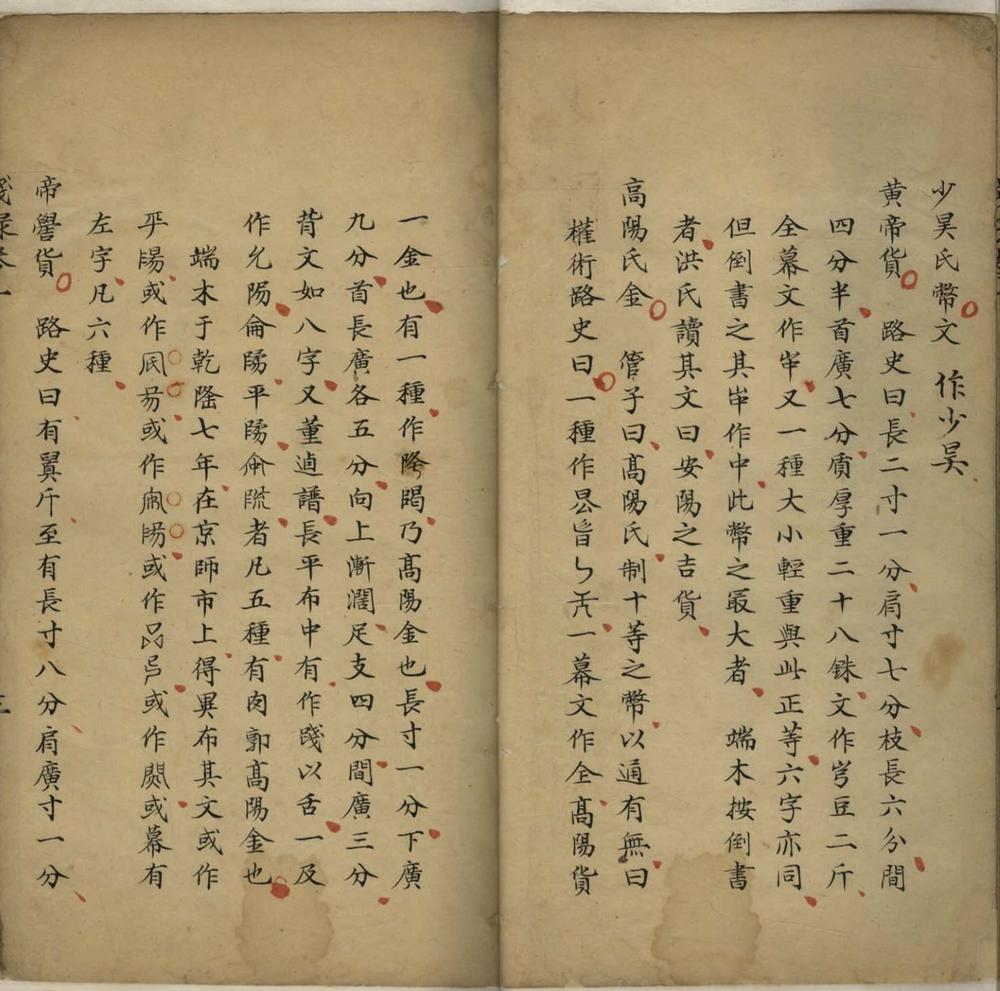 少昊氏幣文 作少昊
黄帝貨 路史曰長二寸一分肩寸七分枝長六分間
四分半首廣七分質厚重二十八銖文作豆二斤
全幕文作又一種大小輕重與此正等六字亦同
但倒書之其作中此幣之最大者 端木按倒書
者洪氏讀其文曰安陽之吉貨
高陽氏金 管子曰髙陽氏制十等之幣以通有無曰
權術路史曰一種作㫖一幕文作全髙陽貨
一金也有一種作乃髙陽金也長寸一分下廣
九分首長廣各五分向上漸濶足支四分間廣三分
背文如八字又董逌譜長平布中有作以舌一及
作平者凡五種有肉郭髙陽金也
端木于乾隆七年在京師市上得異布其文或作
或作或作或作品或作或幕有
左字凡六種
帝嚳貨 路史曰有翼斤至有長寸八分肩廣寸一分
三